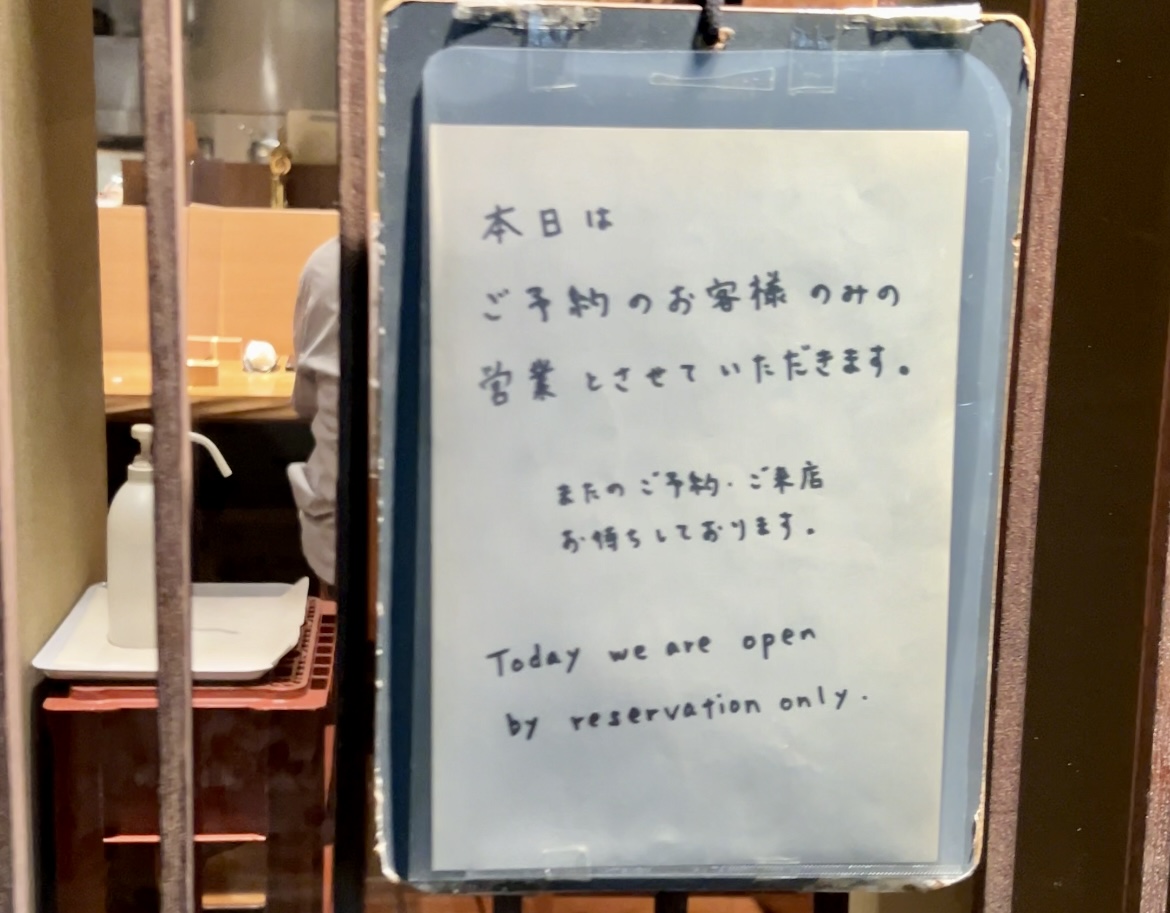 本日は
ご予約のお客様のみの
営業とさせていただきます。
またのご予約・ご来店
お待ちしております。
Today we are open
by reservation only.